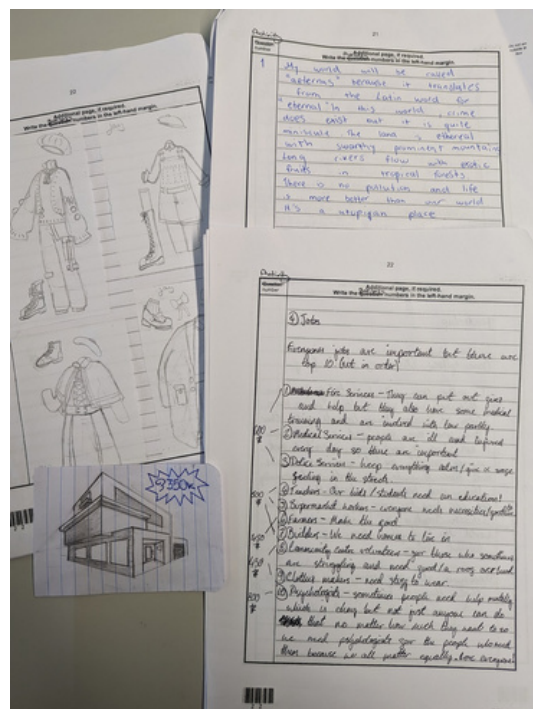 Activity
21
Additional page, if required.
Write the question numbers in the left-hand margin.
Question
number
1
My world will be called
"aeternus" because it translates
from the Latin word for
"eternal" In this world, crime
does exist but it is quite
miniscule. The land is ethereal
with swarthy prominent mountains
Long rivers flow with exotic
fruits in tropical forests
There is no pollution and life
is more better than our world
It's a utopian place
Additional page, if required.
Write the question numbers in the left-hand margin.
350k
Activity
22
Question
number
Additional page, if required.
Write the question numbers in the left-hand margin.
④ Jobs
Everyones jobs are important but these are
top 10 (not in order)
① Fire Services - They can put out fires
and help but they also have some medical
training and are involved with law
② Medical Services - people are ill and injured
every day so these are important
③ Police Services - keep everything
in the streets.
④ Teachers - Our kids / students need an education!
⑤ Supermarket workers - everyone needs necessities
⑥ Farmers - Make the food
⑦ Builders - We need homes to live in
⑧ Community centre volunteers - for those who sometimes
are struggling and need food
⑨ Clothes makers - need stuff to wear.
⑩ Psychologists - sometimes people need help mentally
which is okay but not just anyone can do
that no matter how much they want to so
we need psychologists for the people who need
them because we all matter equally.